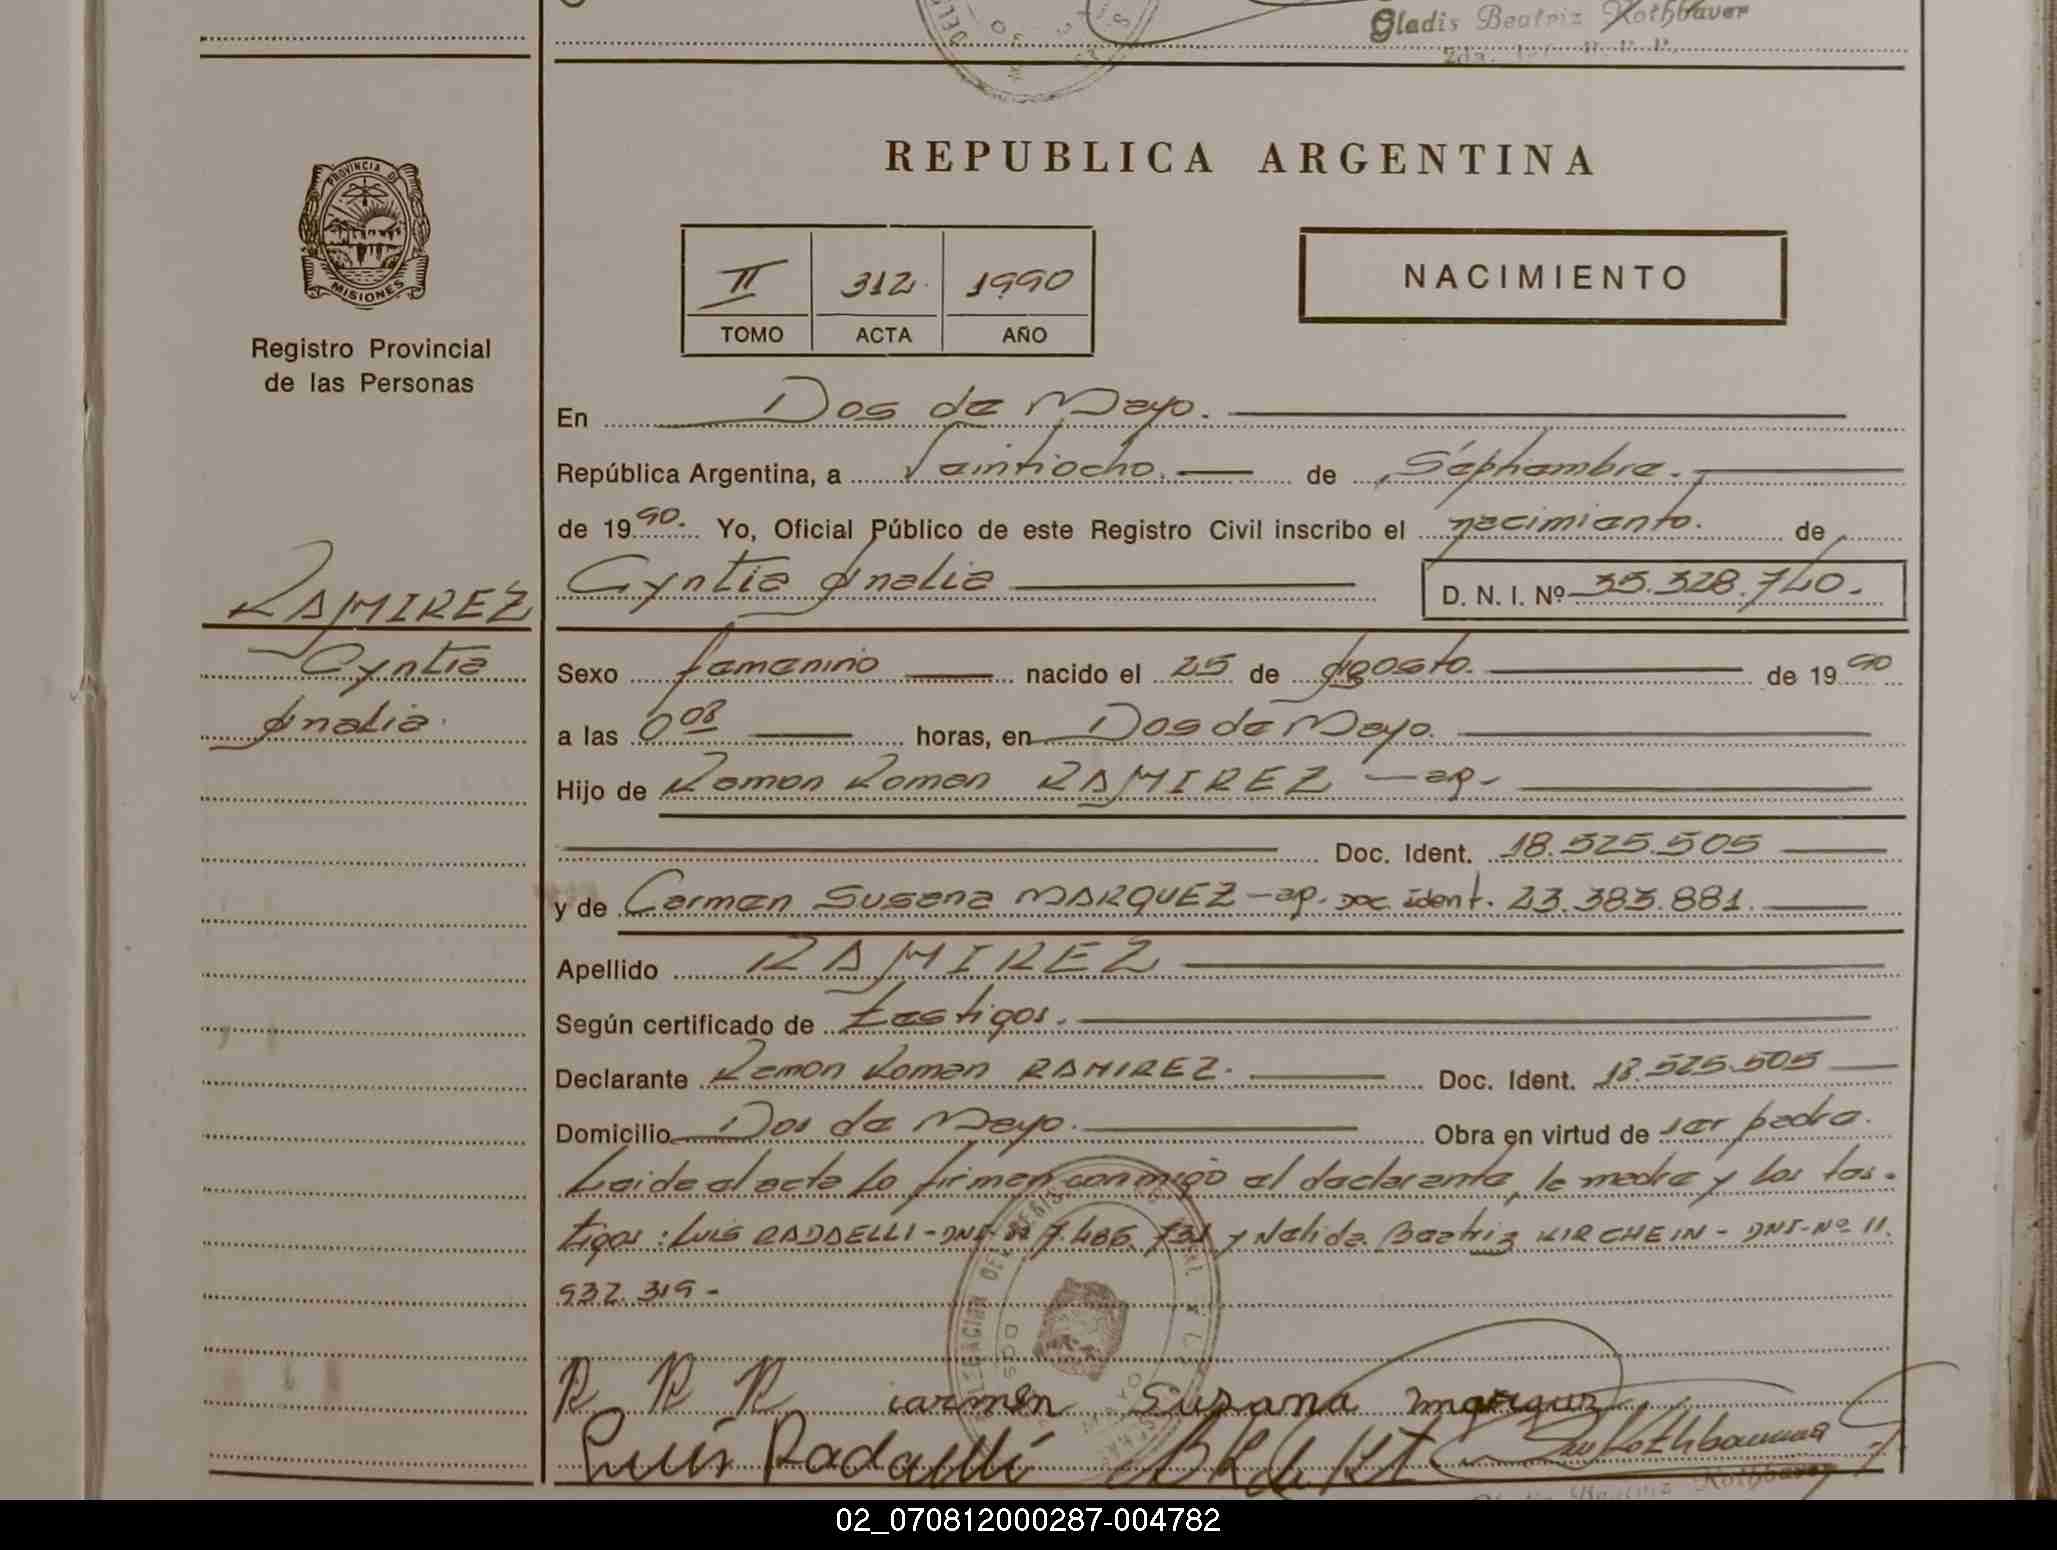 Gladis Beatriz Rothbauer
REPUBLICA ARGENTINA
PROVINCIA DE
MISIONES
Registro Provincial
de las Personas
II 312. 1990
TOMO ACTA AÑO
NACIMIENTO
En Dos de Mayo.
República Argentina, a Veintiocho. de Septiembre.
de 1990. Yo, Oficial Público de este Registro Civil inscribo el nacimiento. de
Cyntia Analia D. N. I. Nº 35.328.740.
RAMIREZ
Cyntia
Analia.
Sexo femenino nacido el 25 de Agosto. de 1990
a las 0 08 horas, en Dos de Mayo.
Hijo de Ramon Roman RAMIREZ - ap.
Doc. Ident. 18.525.505
y de Carmen Susana MARQUEZ - ap. Doc. ident. 23.383.881.
Apellido RAMIREZ
Según certificado de testigos.
Declarante Ramon Roman RAMIREZ. Doc. Ident. 18.525.505
Domicilio Dos de Mayo. Obra en virtud de ser padre.
Leida el acta lo firman conmigo el declarante, la madre y los tes-
tigos: Luis RADAELLI - DNI- Nº 7.486.731 y Nelida Beatriz KIRCHEIN - DNI-Nº 11.
932.319-
R R R carmen Susana marquez
Luis Radaelli
Rothbauer
02_070812000287-004782